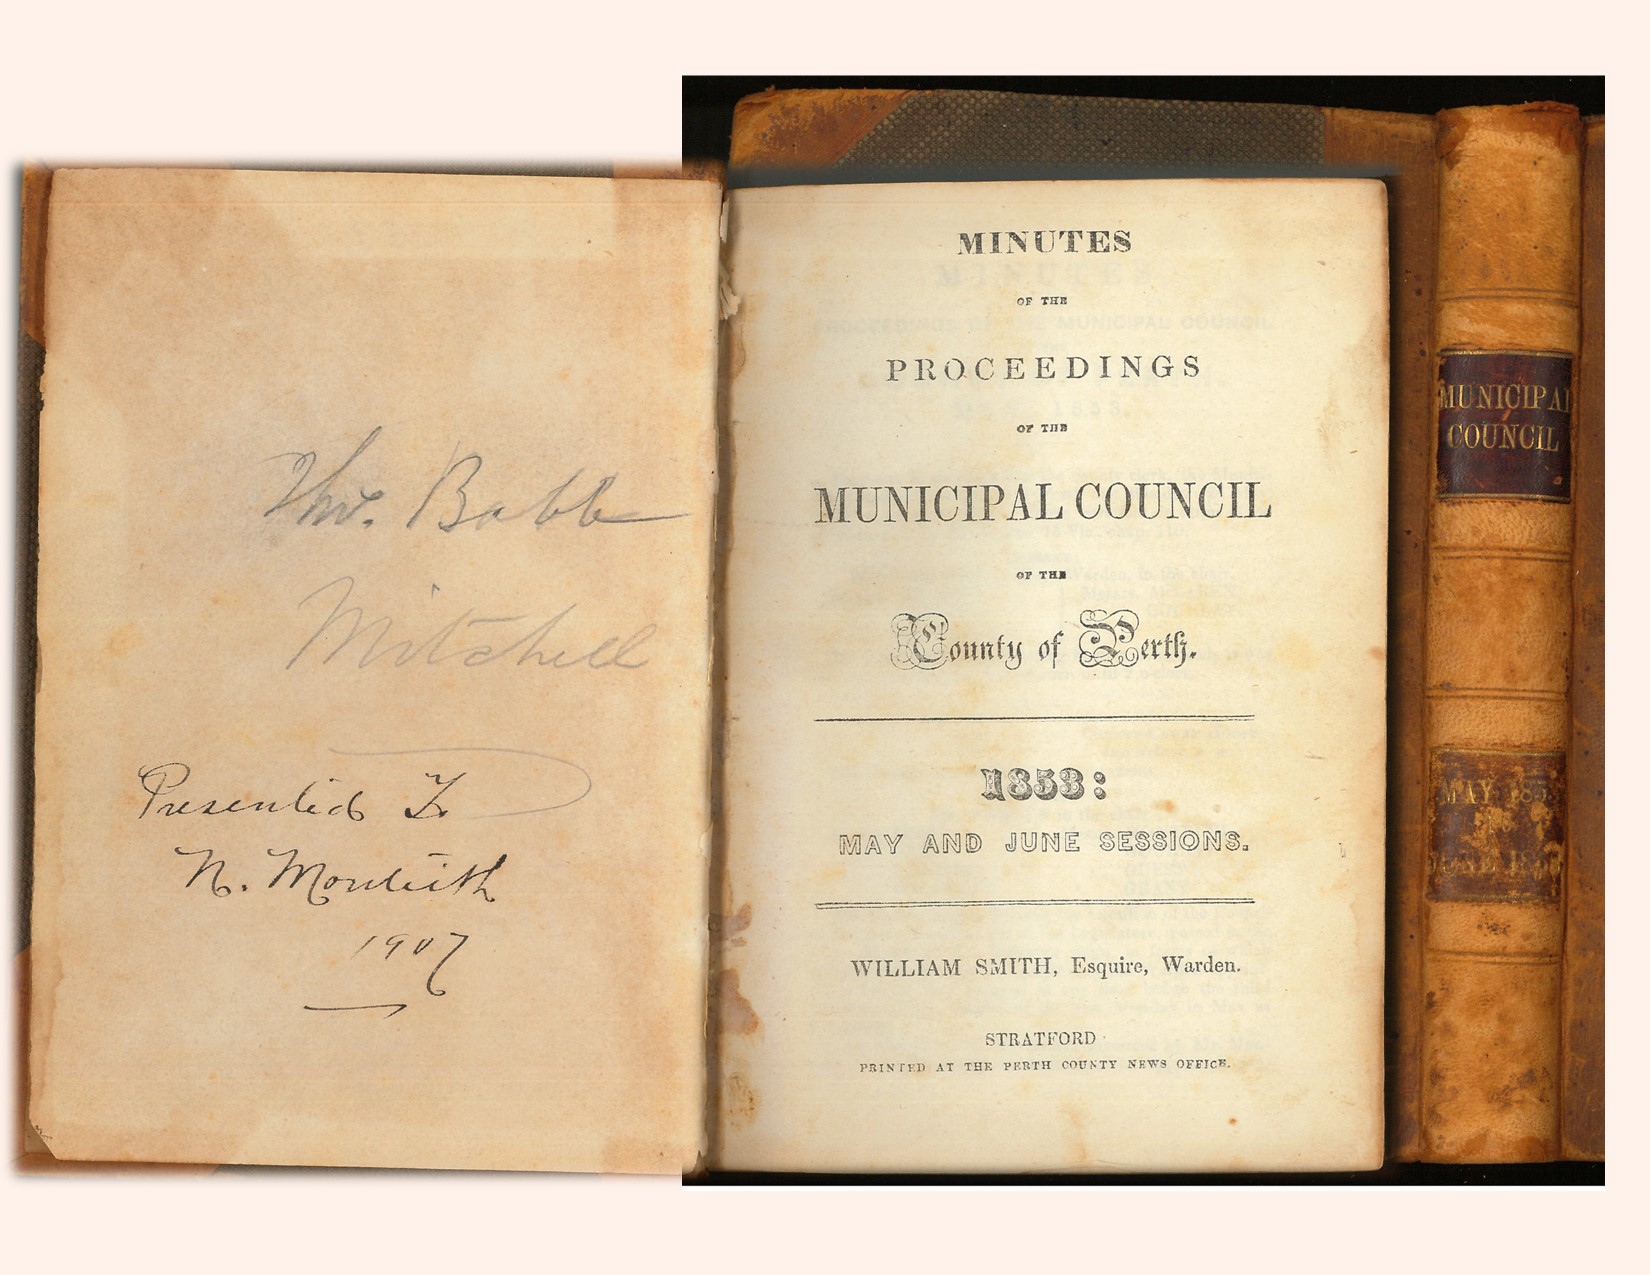 Tho. Babb
Mitchell
Presented To
N. Monteith
1907
MINUTES
OF THE
PROCEEDINGS
OF THE
MUNICIPAL COUNCIL
OF THE
County of Perth.
1853:
MAY AND JUNE SESSIONS.
WILLIAM SMITH, Esquire, Warden.
STRATFORD
PRINTED AT THE PERTH COUNTY NEWS OFFICE.
MUNICIPAL
COUNCIL
MAY
JUNE